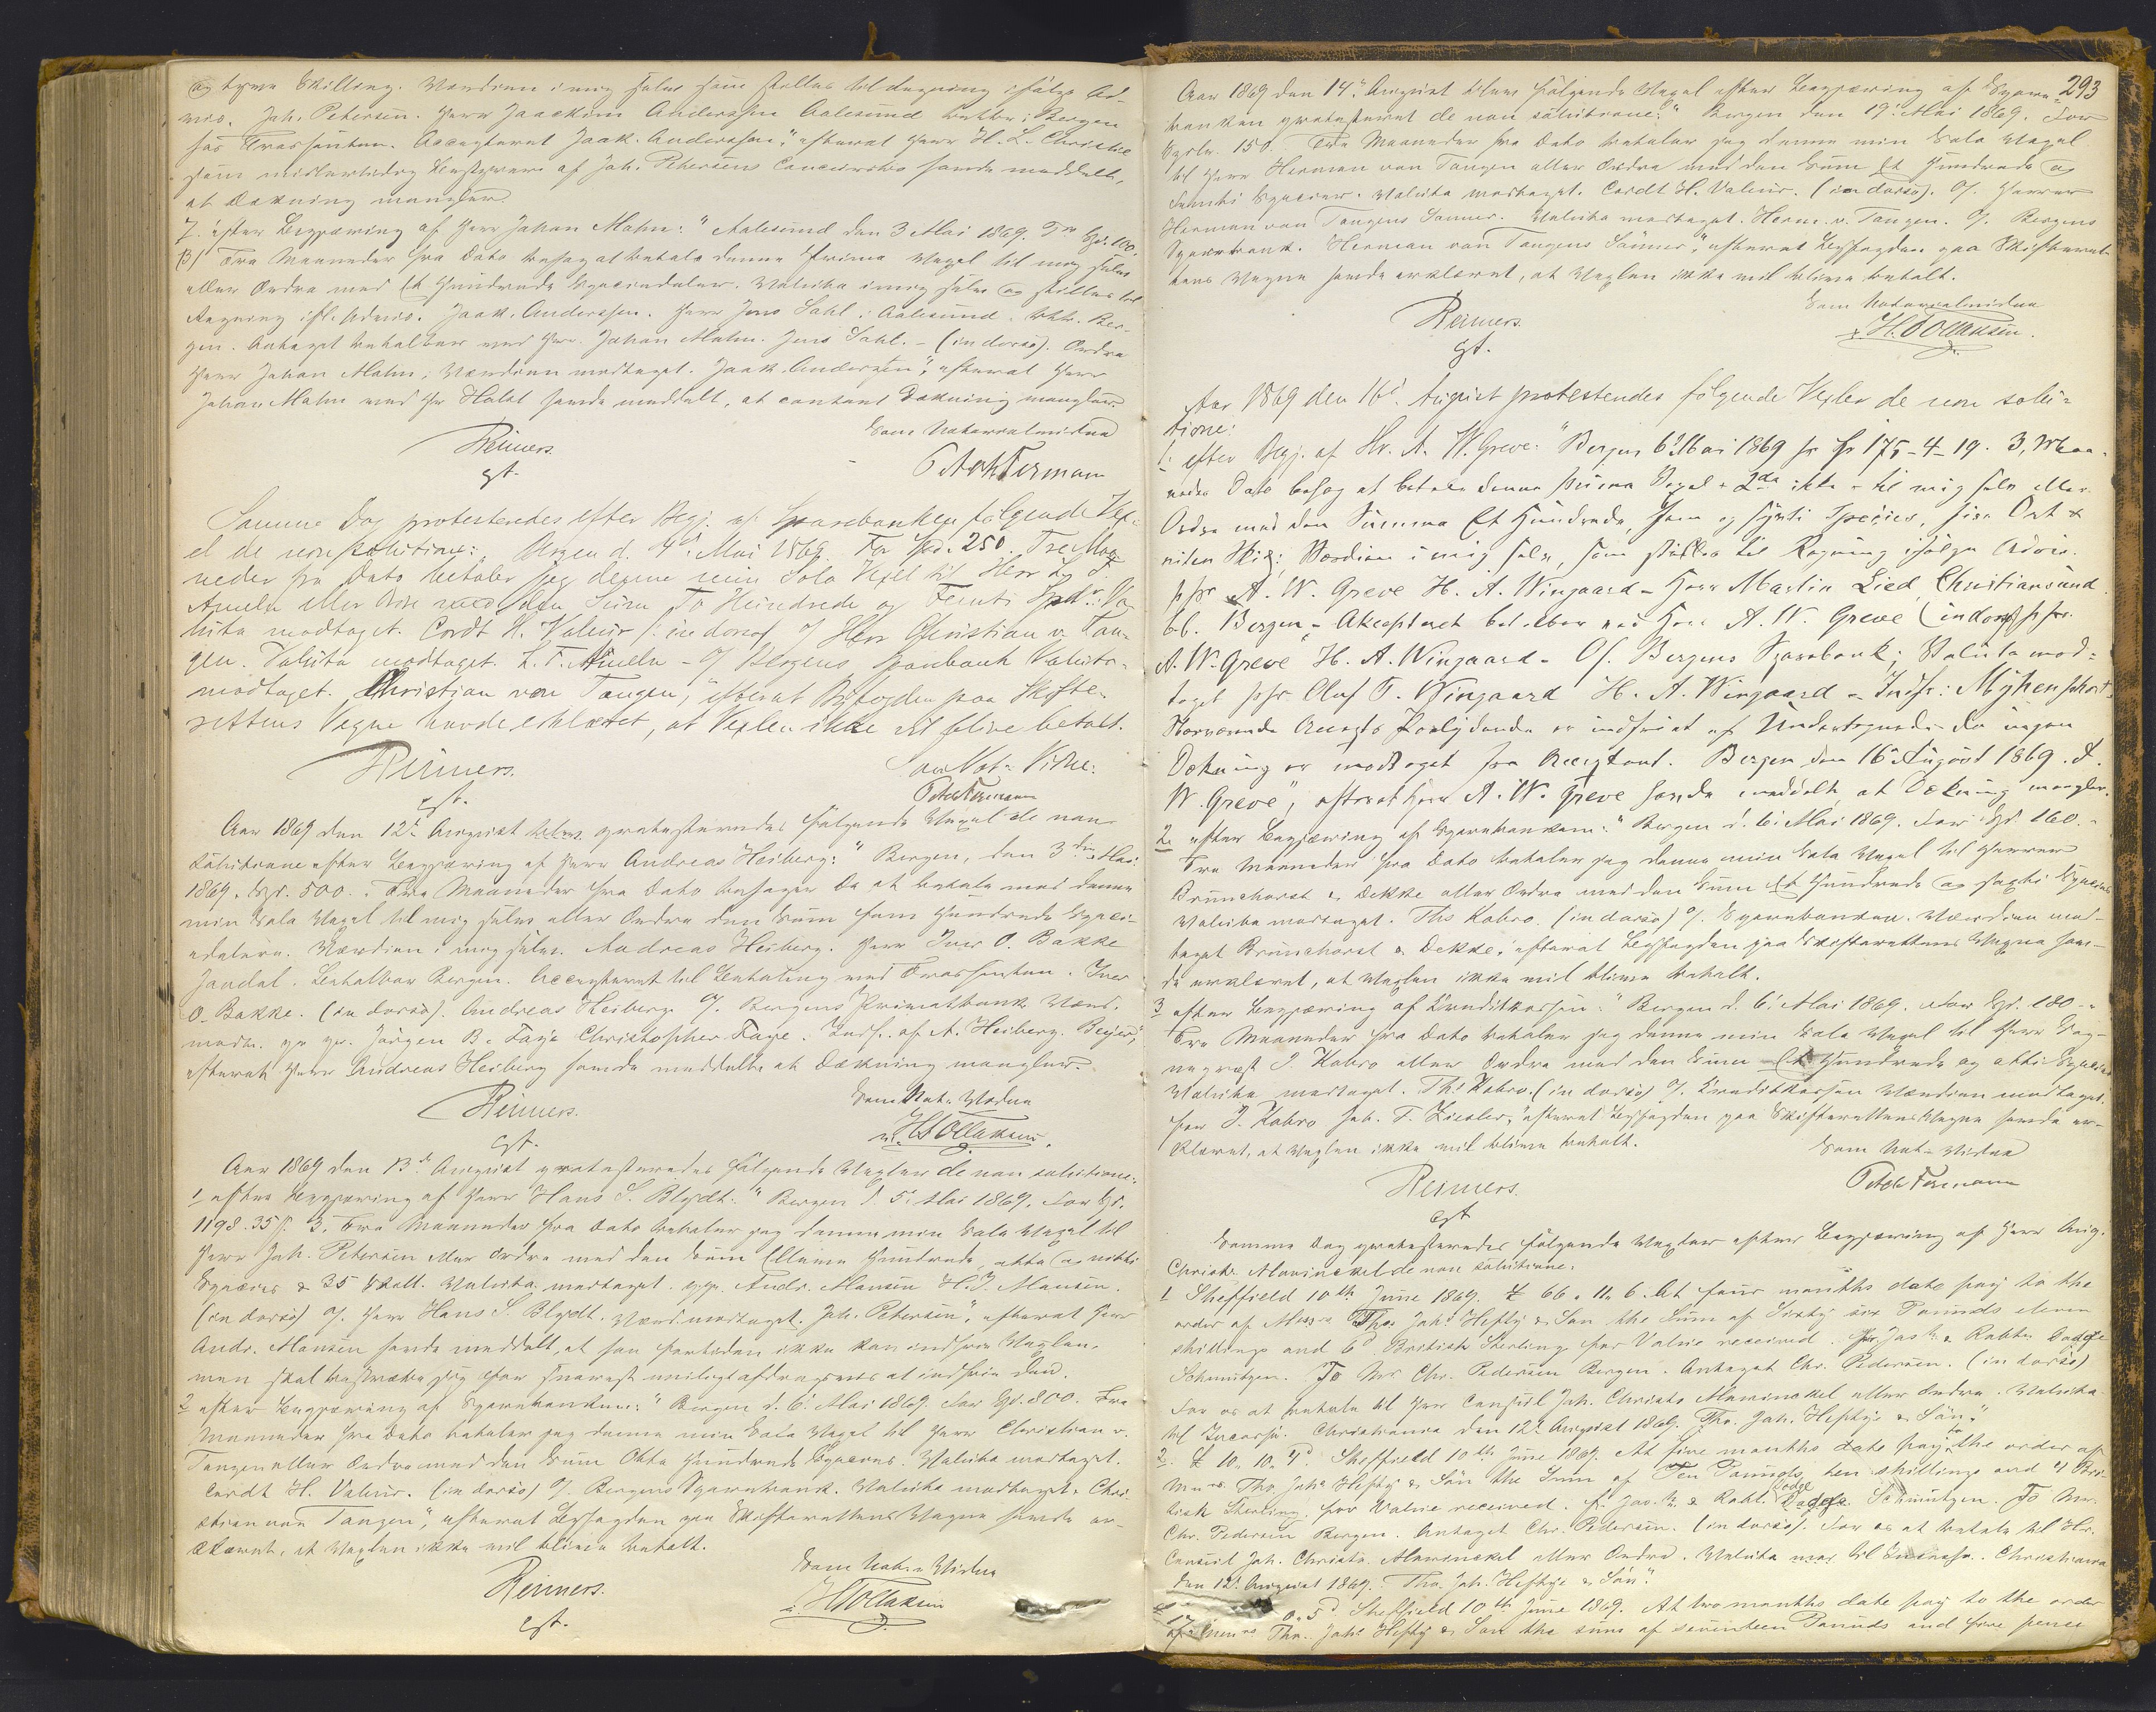 og tyve Skilling. Værdien i mig selv som stilles til Regning ifølge Ad-
viis. Joh. Petersen. Herr Jaackim Anderssen Aalesund betbr: i Bergen
hos Trassenten. Accepteret Jaak. Anderssen", efterat Herr H. L. Christie
som midlertidig Bestyrer af Joh. Petersens Concursbo havde meddelt,
at Dækning mangler.
7. efter Begjæring af Herr Johan Mohn: "Aalesund den 3 Mai 1869. Pr Spd. 100.
B/ Tre Maaneder fra Dato behag at betale denne Prima Vexel til mig selv
eller Ordre med Et Hundrede Speciedaler. Valuta i mig selv og stilles til
Regning ifl. Advis. Jaak. Anderssen. Herr Jens Dahl i Aalesund. betb. Ber-
gen. Antaget betalbar ved Herr Johan Mohn. Jens Dahl. - (in dorso). Ordre
Herr Johan Mohn, Værdien modtaget. Jaak Anderssen", efterat Herr
Johan Mohn ved Hr Holst havde meddelt, at contant Dækning mangler.
Som Notarialvidne
Reimers.
gt.
Samme Dag protesteredes efter Begj. af Sparebanken følgende Vex-
el de non solutione: Bergen d. 4de Mai 1869. For Spd. 250. Tre Maa-
neder fra Dato betaler jeg denne min Sola Vexel til Herr L. F.
Ameln eller Ordre med den Sum To Hundrede og Femti Spdlr. Va-
luta modtaget. Cordt H. Valeur (: in dorso) O/ Herr Christian v. Tan-
gen. Valuta modtaget. L. F. Ameln - O/ Bergens Sparebank Valuta
modtaget. Christian von Tangen", efterat Byfogden paa Skifte-
rettens Vegne havde erklæret, at Vexlen ikke vil blive betalt.
Som Not. Vidne:
Reimers.
gt.
Aar 1869 den 12te August blev protesteredes følgende Vexel de non
solutione efter Begjæring af Herr Andreas Heiberg: "Bergen, den 3die Mai
1869. Spd. 500. Tre Maaneder fra Dato behager De at betale mod denne
min Sola Vexel til mig selv eller Ordre den Sum fem Hundrede Speci-
edalere. Værdien i mig selv. Andreas Heiberg. Herr Iver O. Bakke
Jondal. Betalbar Bergen. Accepteret til Betaling ved Trassenten. Iver
O. Bakke. (in dorso). Andreas Heiberg. O/. Bergens Privatbank Værd.
modt. pr pr. Jörgen B. Faye Christopher Faye. Indf. af A. Heiberg. Beyer",
efterat Herr Andreas Heiberg havde meddelt at Dækning mangler.
Som Not. Vidne
Reimers.
gt.
Aar 1869 den 13de August protesteredes følgende Vexler de non solutione.
1 efter Begjæring af Herr Hans S. Blydt: "Bergen d. 5. Mai 1869. For Spd.
1198. 35 ß. 3. Tre Maaneder fra Dato betaler jeg denne min Sola Vexel til
Herr Joh. Petersen eller Ordre med den Sum Elleve Hundrede otte og nitti
Species & 35 Skill. Valuta modtaget. pr pr. Andr. Monsen H. J. Monsen.
(in dorso) O/. Herr Hans S. Blydt. Værd. modtaget. Joh. Petersen", efterat Herr
Andr. Monsen havde meddelt, at han fortiden ikke kan indfrie Vexlen,
men skal bestræbe sig for snarest muligt afdragsvis at indfrie den.
2 efter Begjæring af Sparebanken: "Bergen d. 6. Mai 1869. For Spd. 800. Tre
Maaneder fra Dato betaler jeg denne min Sola Vexel til Herr Christian v.
Tangen eller Ordre med den Sum Otte Hundrede Species. Valuta modtaget.
Cordt H. Valeur. (in dorso) O/. Bergens Sparebank. Valuta modtaget. Chri-
stian von Tangen", efterat Byfogden paa Skifterettens Vegne havde er-
klæret, at Vexlen ikke vil blive betalt.
Som Not. Vidne
Reimers.
gt.
293
Aar 1869 den 14de August blev følgende Vexel efter Begjæring af Spare-
banken protesteret de non solutione: "Bergen den 19. Mai 1869. For
Spdlr. 150. Tre Maaneder fra Dato betaler jeg denne min Sola Vexel
til Herr Herman von Tangen eller Ordre med den Sum Et Hundrede og
Femti Species. Valuta modtaget. Cordt H. Valeur. (in dorso). O/. Herrer
Herman von Tangens Sönner. Valuta modtaget. Herm. v. Tangen. O/. Bergens
Sparebank. Herman von Tangens Sönner", efterat Byfogden paa Skifteret-
tens Vegne havde erklæret, at Vexlen ikke vil blive betalt.
Som Notarialvidne
Reimers.
gt.
Aar 1869 den 16de August protesteredes følgende Vexler de non solu-
tione:
1. efter Begj. af Hr. A. W. Greve. "Bergen 6 Mai 1869 for Sp 175-4-19. 3, Maa-
neder Dato behag at betale denne prima Vexel - 2da ikke - til mig selv eller
Ordre med den Summa Et Hundrede, fem og sytti Species, fire Ort &
nitten Skill; Værdien i mig selv, som stilles til Regning ifølge Advis.
ppr. A. W. Greve H. A. Wingaard - Herr Martin Lied, Christiansund
bb. Bergen - Akcepteret betalbar ved Herr A. W. Greve (indorso) ppr.
A. W. Greve H. A. Wingaard - O/. Bergens Sparebank; Valuta mod-
taget ppr Oluf T. Wingaard H. A. Wingaard -
Dækning er modtaget fra Acceptant. Bergen den 16 August 1869. A.
W. Greve", efterat Herr A. W. Greve havde meddelt at Dækning mangler.
2 efter Begjæring af Sparebanken: "Bergen d. 6. Mai 1869. For Spd. 160.
Tre Maaneder fra Dato betaler jeg denne min Sola Vexel til Herrer
Brunchorst & Dekke eller Ordre med den Sum Et Hundrede og sexti Species
Valuta modtaget. Ths Kobro. (in dorso) O/. Sparebanken. Værdien mod-
taget Brunchorst & Dekke", efterat Byfogden paa Skifterettens Vegne hav-
de erklæret, at Vexlen ikke vil blive betalt.
3 efter Begjæring af Creditkassen: "Bergen d. 6. Mai 1869. For Spd. 180.
Tre Maaneder fra Dato betaler jeg denne min Sola Vexel til Herr Sog-
nepræst J. Kobro eller Ordre med den Sum Et Hundrede og otti Species
Valuta modtaget. Ths Kobro. (in dorso) O/. Creditkassen Værdien modtaget.
for J. Kobro Joh. F. Ziesler", efterat Byfogden paa Skifterettens Vegne havde er-
klæret, at Vexlen ikke vil blive betalt.
Som Not. Vidne
Reimers.
gt
Samme Dag protesteredes følgende Vexler efter Begjæring af Herr Aug.
Christ. Mowinckel de non solutione.
1 Sheffield 10th June 1869. £ 66. 11. 6. At four months date pay to the
order of Messrs Tho. Joh. Heftÿ & Son the Sum of Sixty six Pounds eleven
shillings and 6d British Sterling for Value received.
Schmitgen. To Mr. Chr. Pedersen Bergen. Antaget Chr. Pedersen. (in dorso)
For os at betale til Herr Consul Joh. Christo Mowinckel eller Ordre. Valuta
til Incasso. Christiania den 12te August 1869. Tho. Joh. Heftye & Sön."
2. £ 10. 10. 4d. Sheffield 10th June 1869. At five months date pay to the order of
Messrs. Tho. Joh. Heftÿ & Sön the Sum of Ten Pounds, ten shillings and 4d Bri-
tish Sterling, for Value received. Schmitgen. To Mr.
Chr. Pedersen Bergen. Antaget Chr. Pedersen. (in dorso). For os at betale til Hr.
Consul Joh. Christo. Mowinckel eller Ordre. Valuta til Incasso. Christiania
den 12. August 1869. Tho. Joh. Heftye & Sön".
£ 17 0. 5d. Sheffield 10th June 1869. At two months date pay to the order
of Messrs Tho. Joh. Heftÿ & Son the sum of seventeen Pounds and five pence